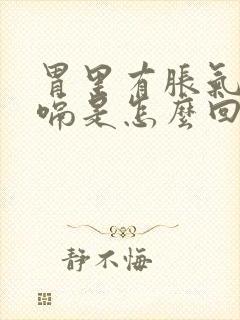 胃里有脹氣
嗝是怎麼回
静不悔